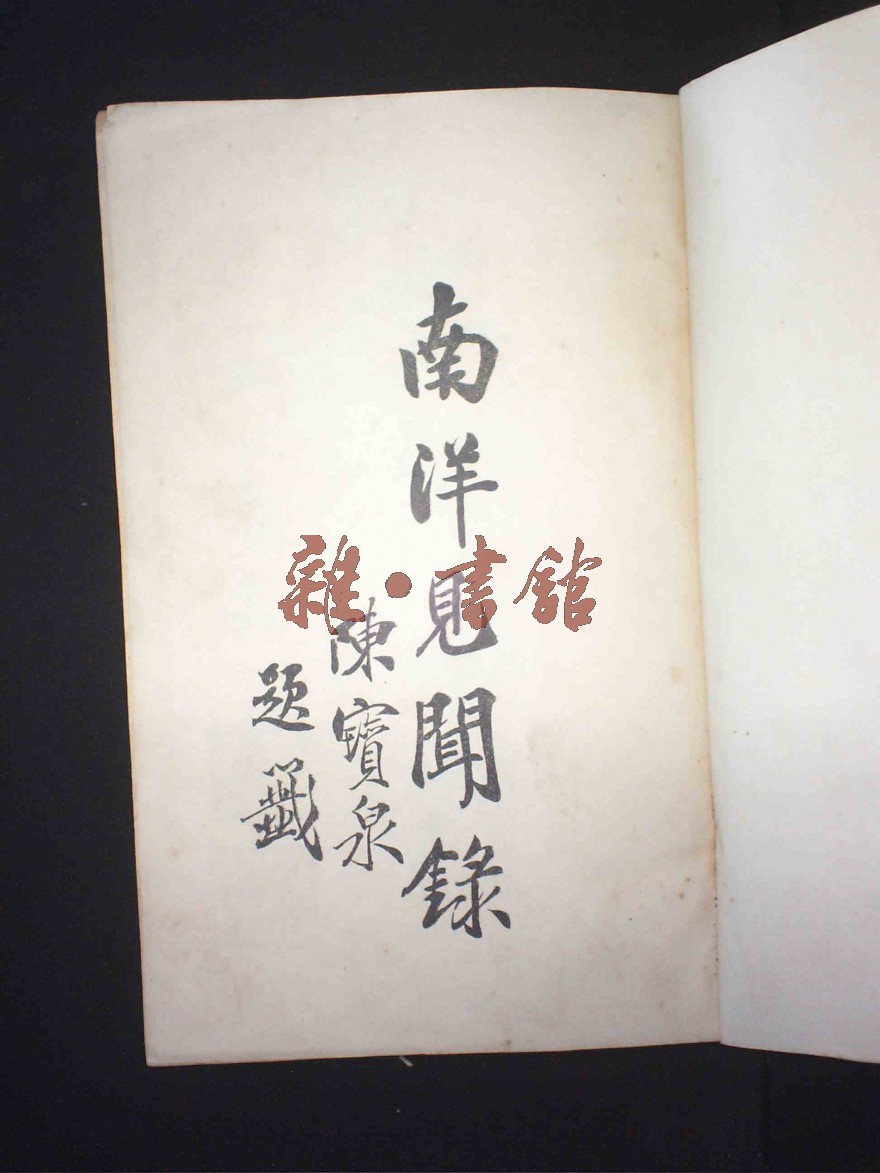 南洋見聞錄
陳寶泉
題籤
雜·書館